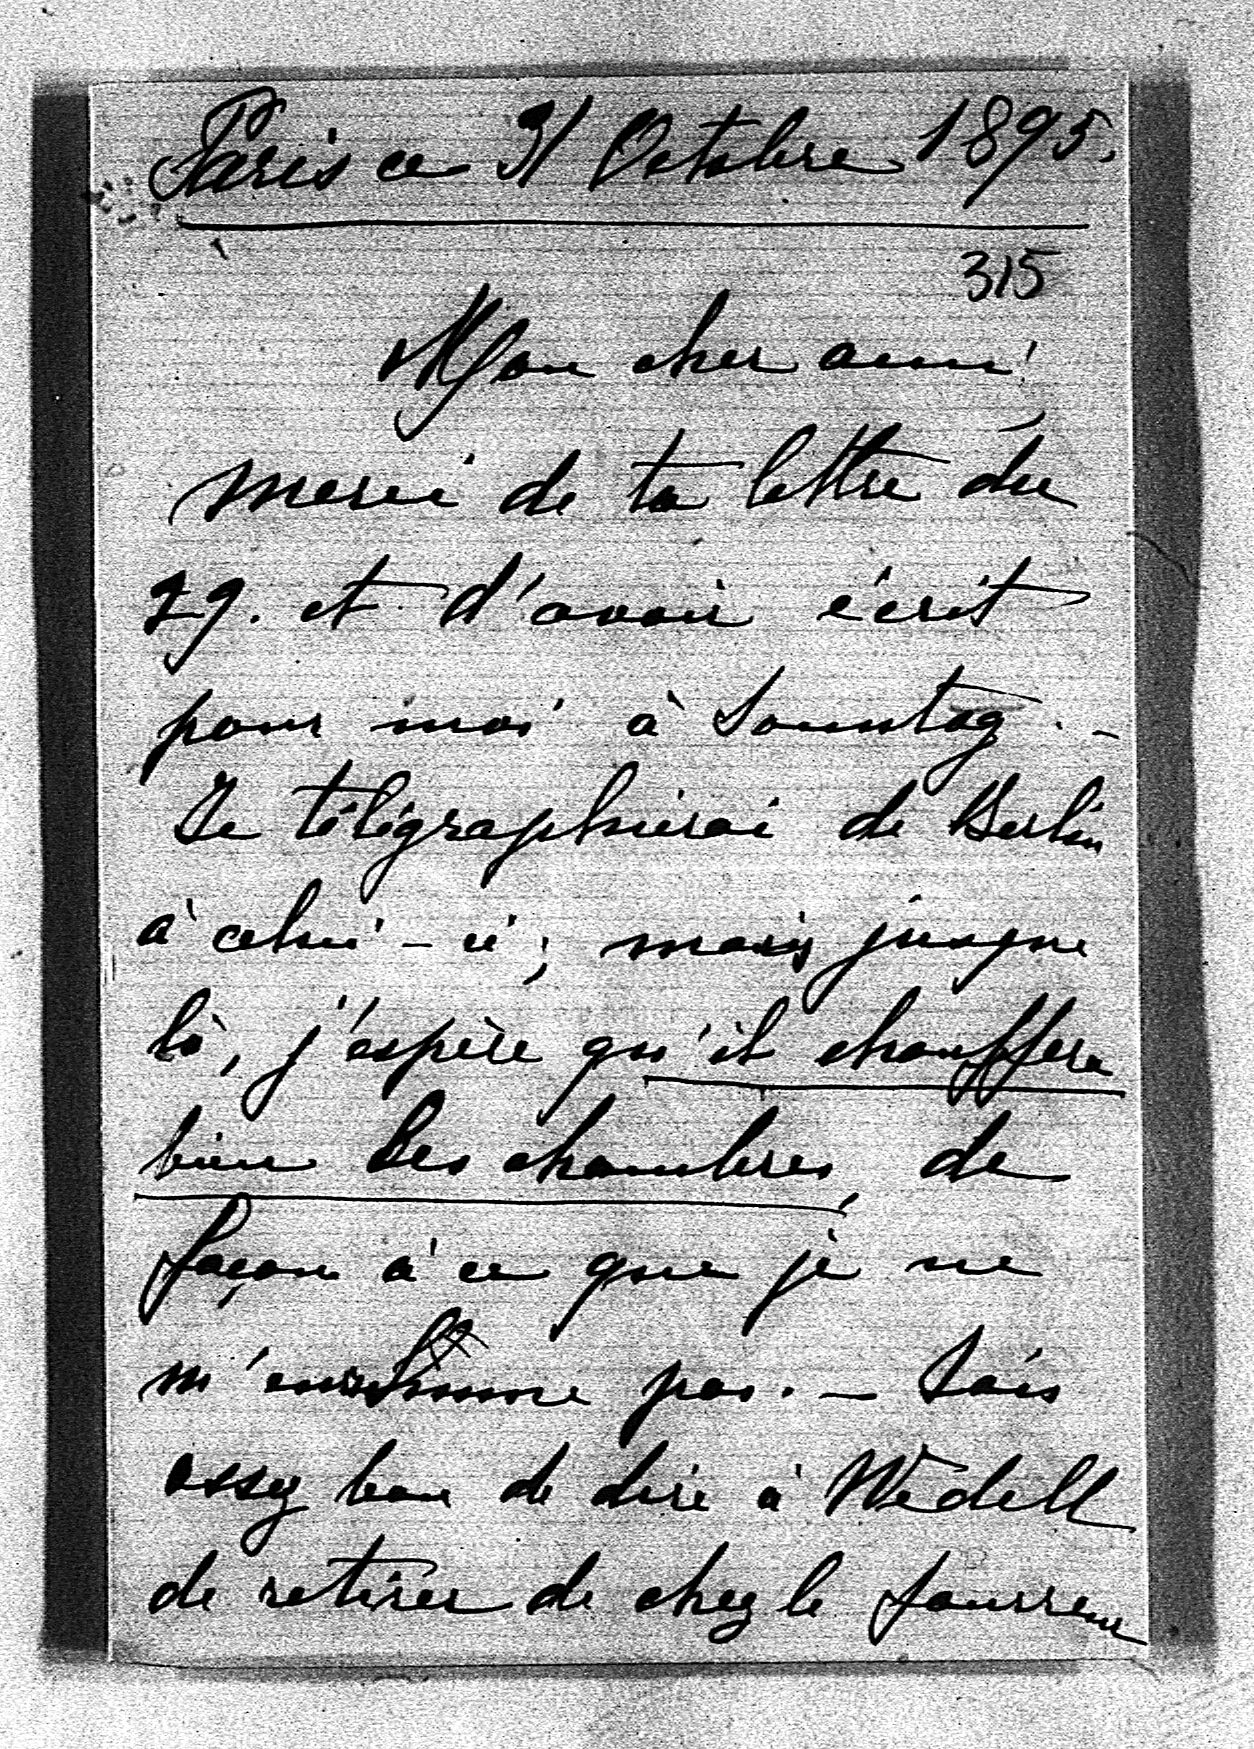 Paris ce 31 Octobre 1895.
315
Mon cher ami,
merci de ta lettre du
29. et d'avoir écrit
pour moi à Sonntag. -
Je télégraphierai de Berlin
à celui-ci; mais jusque
là, j'espère qu'il chauffera
bien les chambres, de
façon à ce que je ne
m'enrhume pas. - Sois
assez bon de dire à Wedell
de retirer de chez le fourreur